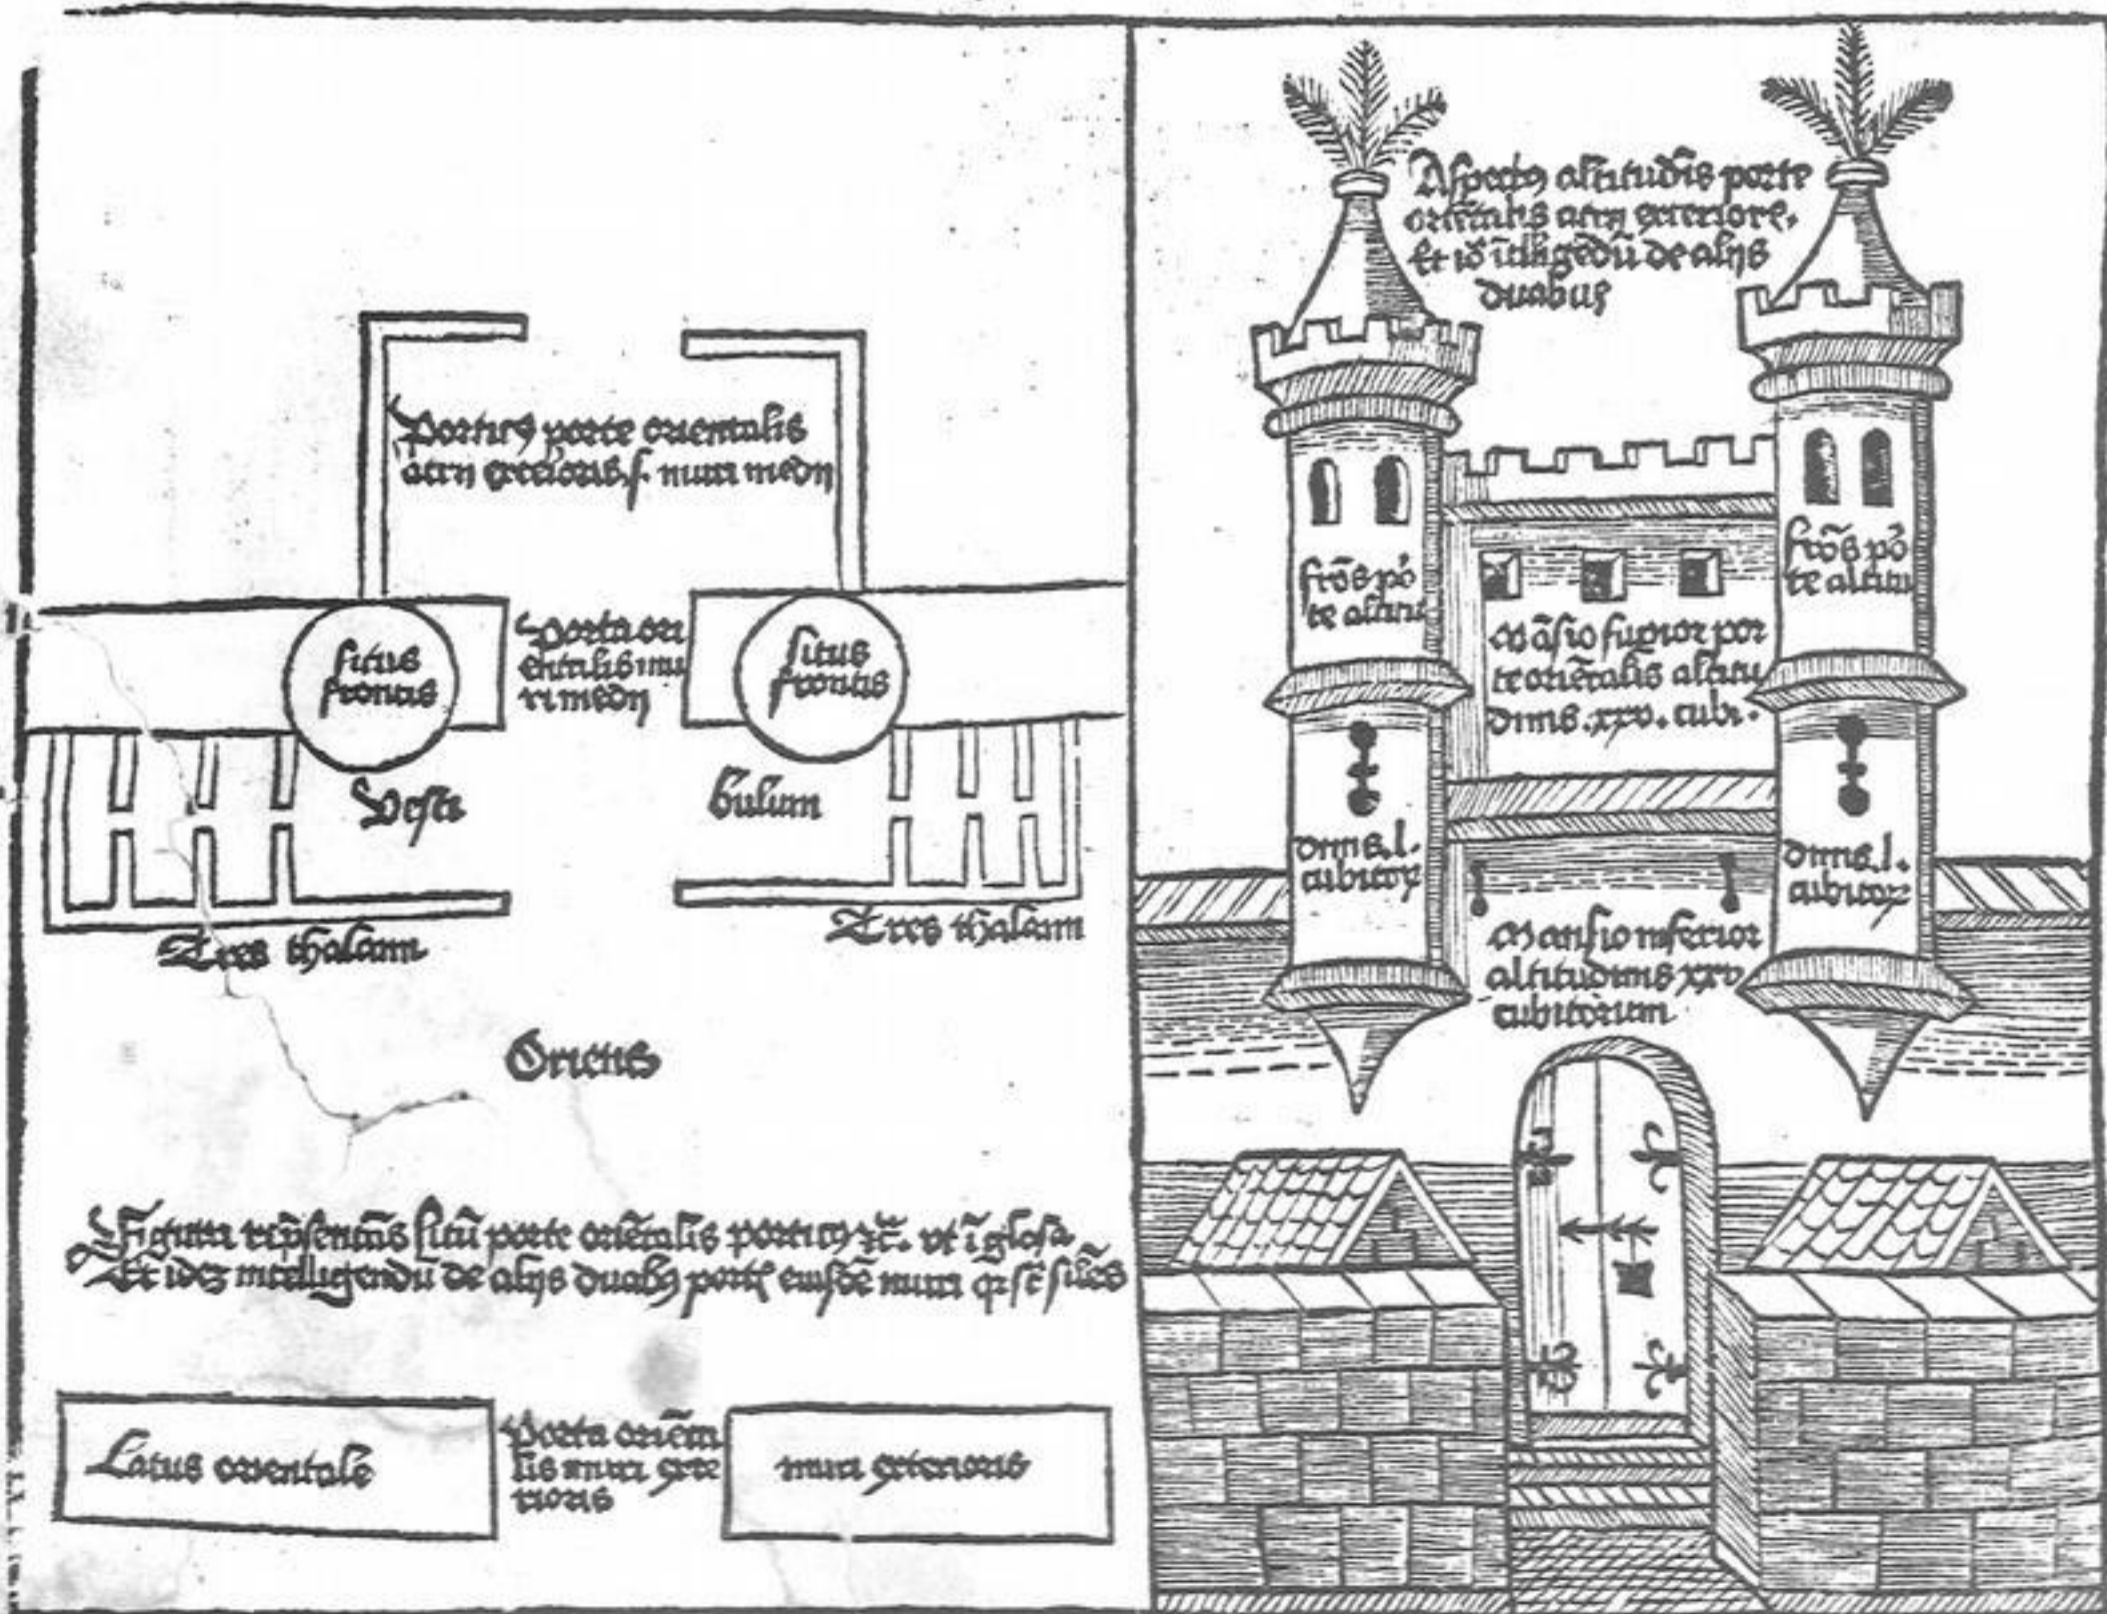 Porticꝰ porte orientalis
atrij exterioris .s. muri medij
situs
frontis
Porta ori
entalis mu
ri medij
situs
frontis
Vesti
bulum
Tres thalami
Tres thalami
Oriens
Figura rep̄sentās sitū porte oriētalis porticꝰ ⁊c̄. vt ī glosa.
Et idez intelligendū de alijs duabꝰ port eiusdē muri
Latus orientale
Porta oriēta
lis muri exte
rioris
muri exterioris
Aspectꝰ altitudīs porte
oriētalis atrij exteriore.
Et iō ītelligēdū de alijs
duabus
frōs por
te altitu
dinis .l.
cubitoꝝ
Māsio suꝑior por
te oriētalis altitu
dinis .xxv. cubi.
Mansio inferior
altitudinis xxv
cubitorum
frōs por
te altitu
dinis .l.
cubitoꝝ